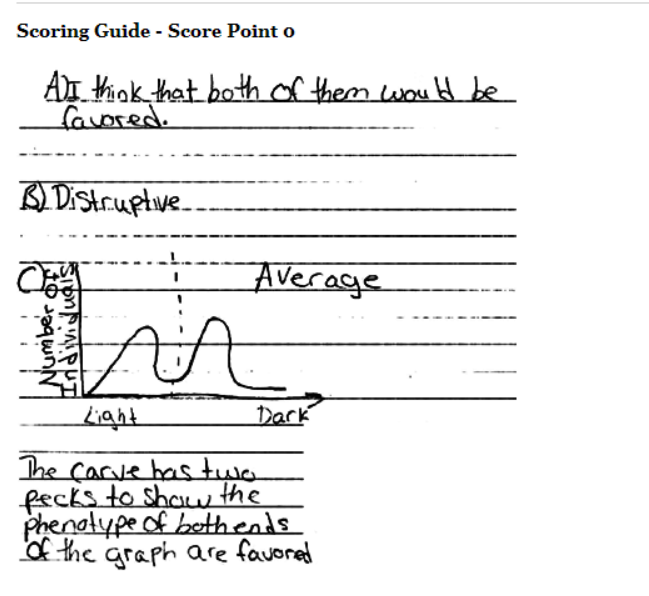 Scoring Guide - Score Point 0
A) I think that both of them would be
favored.
B) Distruptive
C)
Average
Number of
Individuals
Light Dark
The carve has two
pecks to show the
phenotype of both ends
of the graph are favored